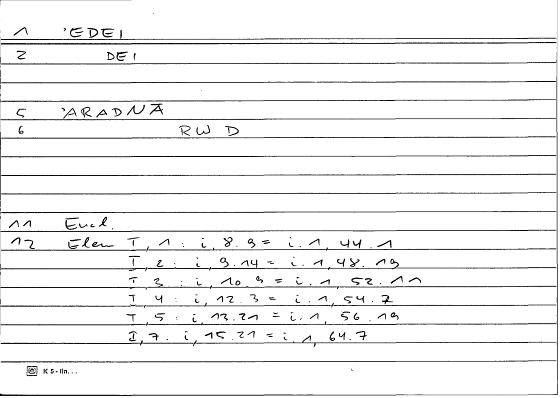 1 'EDEI
2 DEI
5 'ARADNĀ
6 RW D
11 Eucl.
12 Elem I, 1 : i, 8.9 = i. 1, 44.1
I, 2 : i, 9.14 = i. 1, 48.19
I, 3 : i, 10.9 = i. 1, 52.11
I, 4 : i, 12.3 = i. 1, 54.7
I, 5 : i, 13.21 = i. 1, 56.19
I, 7 : i, 15.21 = i. 1, 64.7
K 5 - lin...